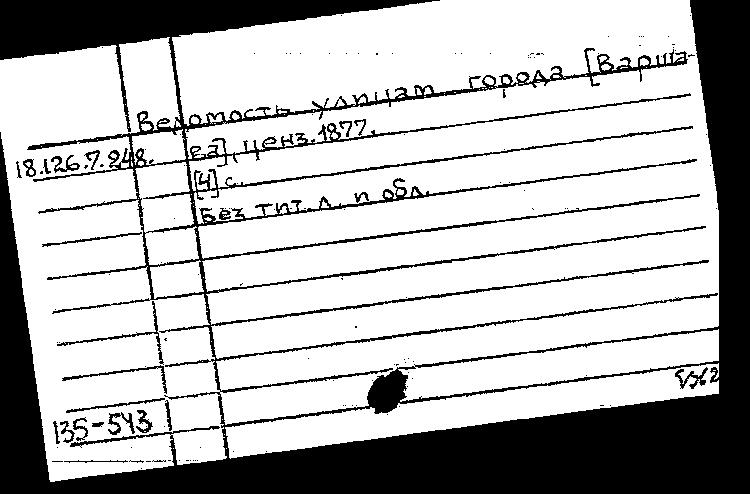 Ведомость улицам города [Варша
18.126.7.248. ва], ценз. 1877.
[4] с.
Без тит. л. и обл.
135-543